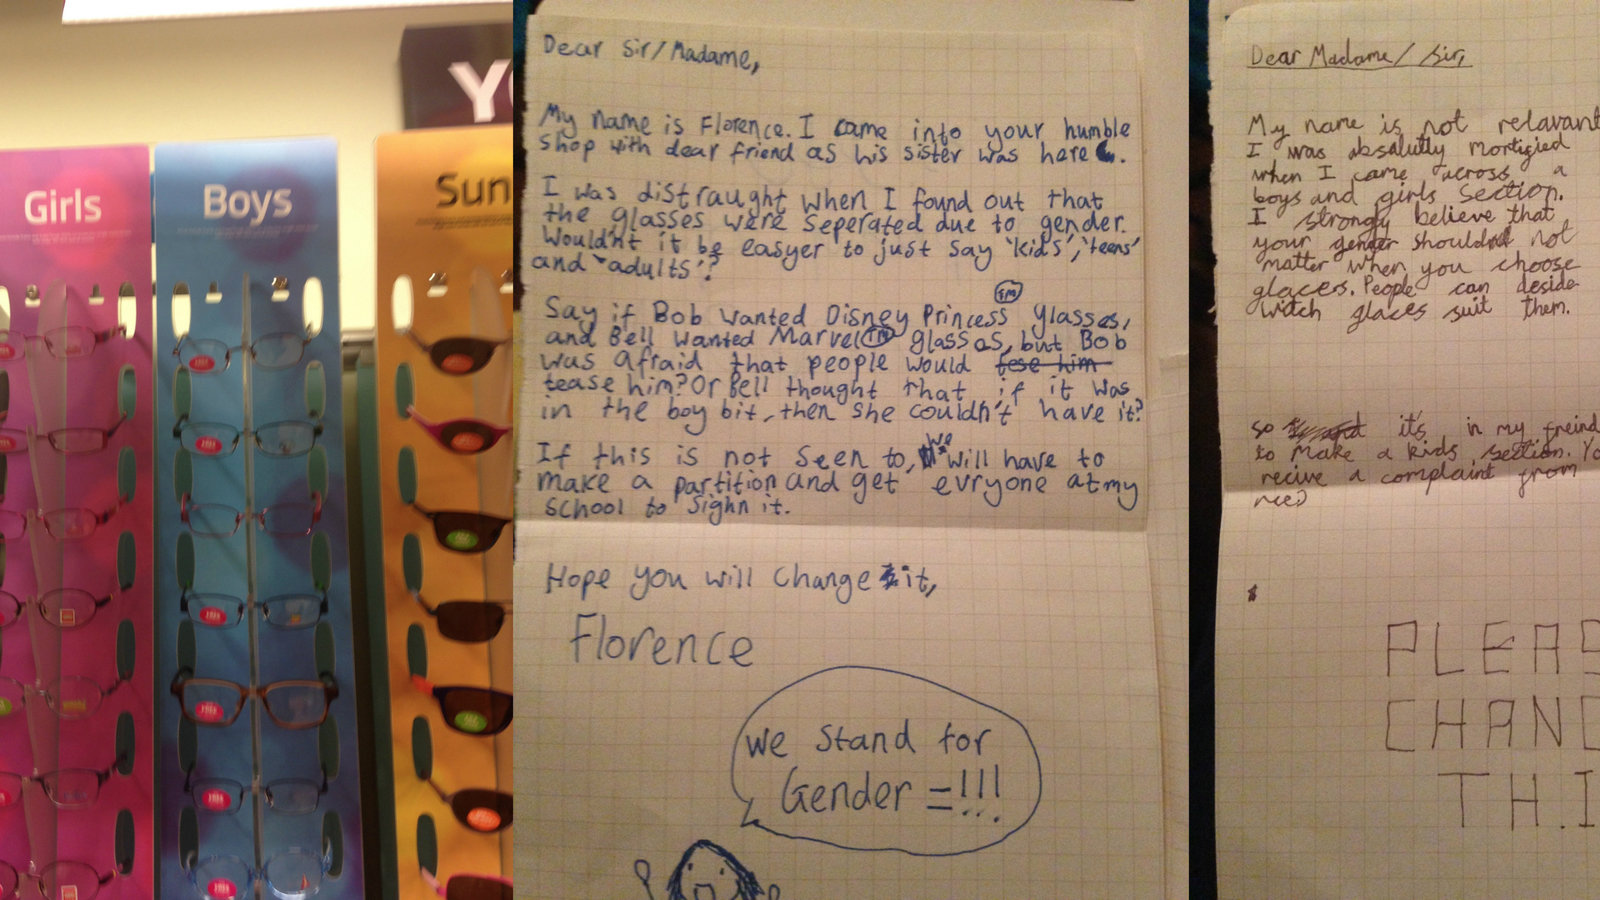 Girls
Boys
Sun
Dear Sir/Madame,
My name is Florence. I came into your humble
shop with dear friend as his sister was here.
I was distraught when I found out that
the glasses were seperated due to gender.
Wouldn't it be easyer to just say 'kids', 'teens'
and 'adults'?
Say if Bob wanted Disney Princess TM glasses,
and Bell wanted Marvel TM glasses, but Bob
was afraid that people would fese him
tease him? Or Bell thought that if it was
in the boy bit, then she couldn't have it?
If this is not seen to, We will have to
make a partition and get evryone at my
school to sighn it.
Hope you will change it,
Florence
We stand for
Gender =!!!
Dear Madame/Sir,
My name is not relavant
I was absalutly mortigied
when I came across a
boys and girls section.
I strongly believe that
your gender should not
matter when you choose
glacers. People can deside
witch glaces suit them.
so it's in my freind
to make a kids section. Yo
recive a complaint from
PLEAS
CHANG
THI